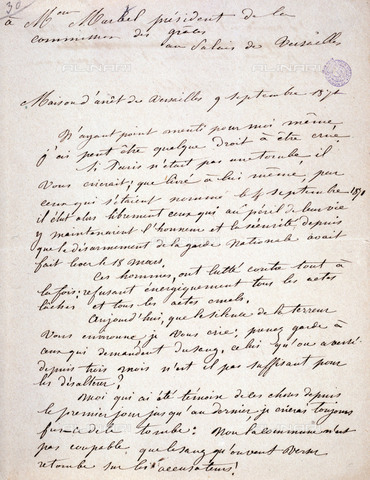 30
à Mr Martel président de la
commission des grâces
au Palais de Versailles
Maison d'arrêt de Versailles 9 septembre 1871
N'ayant point menti pour moi même
j'ai peut être quelque droit à être crue
Si Paris n'était pas une tombe, il
Vous crierait, que livré à lui même, par
ceux qui s'étaient nommé le 4 septembre 1870
il élut alors librement ceux qui au péril de leur vie
y maintenaient l'honneur et la sécurité, depuis
que le désarmement de la garde Nationale avait
fait lever le 18 mars.
Ces hommes, ont lutté contre tout à
la fois; refusant énergiquement tous les actes
lâches et tous les actes cruels.
Aujourd'hui, que le silence de la terreur
Vous environne, je Vous crie: prenez garde à
ceux qui demandent du sang, celui qu'on a versé
depuis trois mois n'est il pas suffisant pour
les désaltérer?
Moi qui ai été témoin de ces choses depuis
le premier jour jusqu'au dernier je crierai toujours
fusse de la tombe: Non la commune n'est
pas coupable que le sang qu'on veut verser
retombe sur les accusateurs!
ALINARI